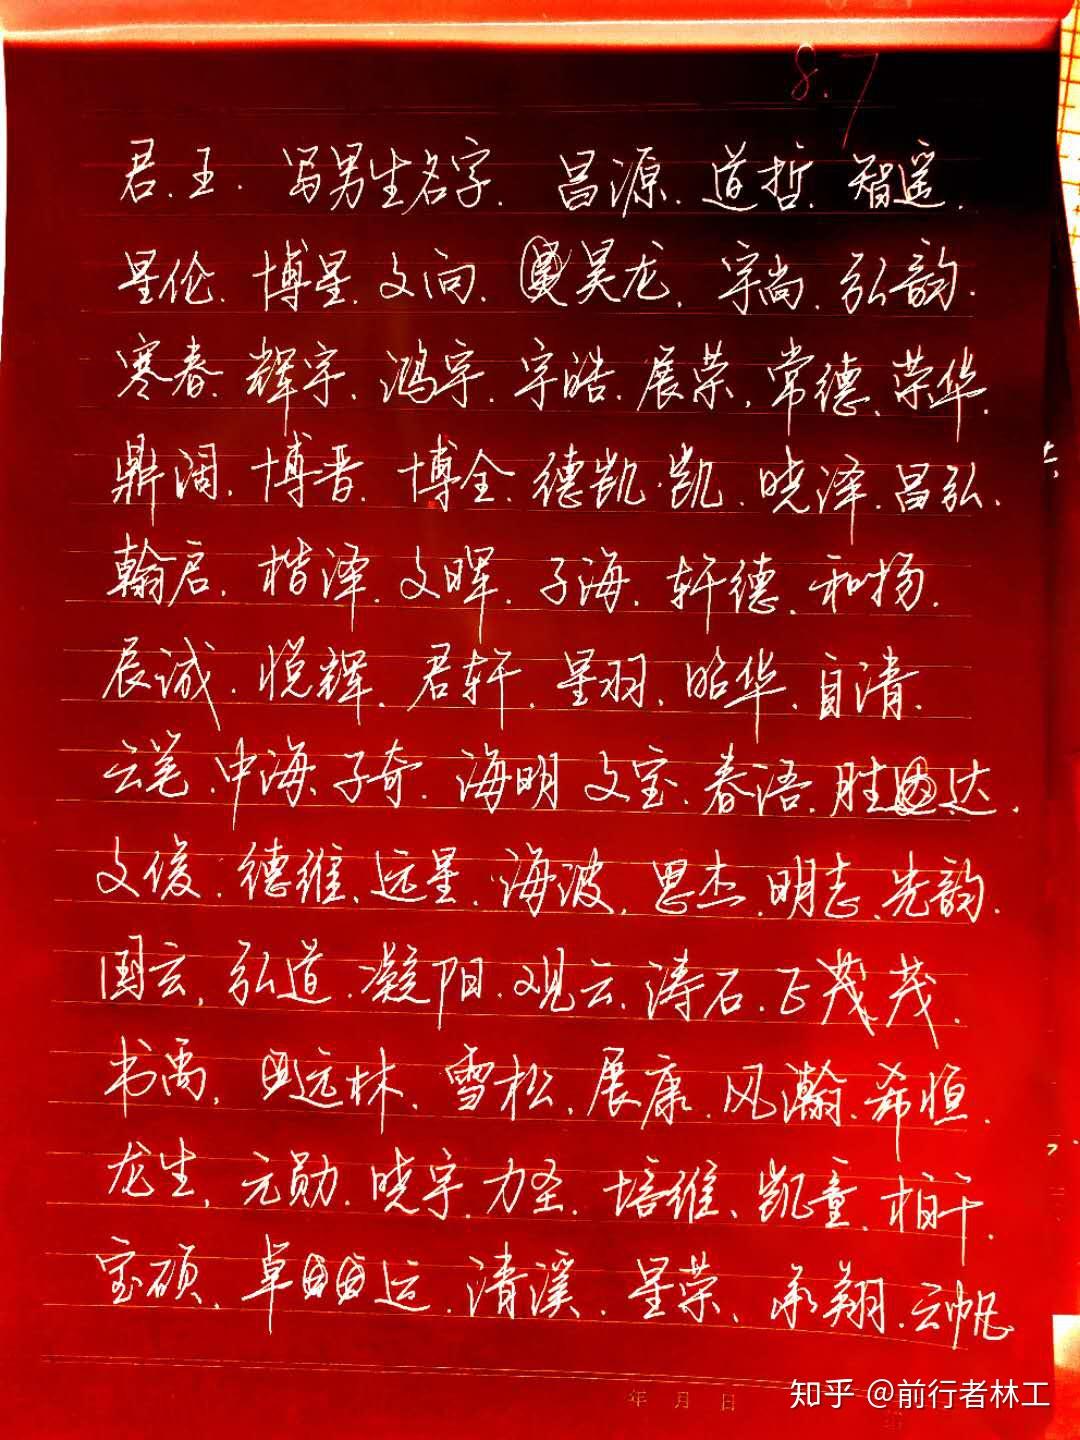 8.7
君.王. 写男生名字. 昌源. 道哲. 智遥.
星伦. 博星. 文向. 昊龙. 宇尚. 弘韵.
寒春. 辉宇. 鸿宇. 宇皓. 展荣. 常德. 荣华.
鼎阔. 博晋. 博全. 德凯. 凯. 晓泽. 昌弘.
翰启. 楷泽. 文晖. 子海. 轩德. 和扬.
辰诚. 悦辉. 君轩. 星羽. 昭华. 自清.
云笔. 中海. 子奇. 海明. 文宝. 春浯. 胜达.
文俊. 德维. 远星. 海波. 思杰. 明志. 先韵.
国云. 弘道. 凝阳. 观云. 涛石. 正茂. 茂.
书禹. 远林. 雪松. 展康. 风瀚. 希恒.
龙生. 元勋. 晓宇. 力圣. 培维. 凯童. 柏千.
宝硕. 卓运. 清溪. 星荣. 承翔. 云帆
年 月 日
知乎 @前行者林工